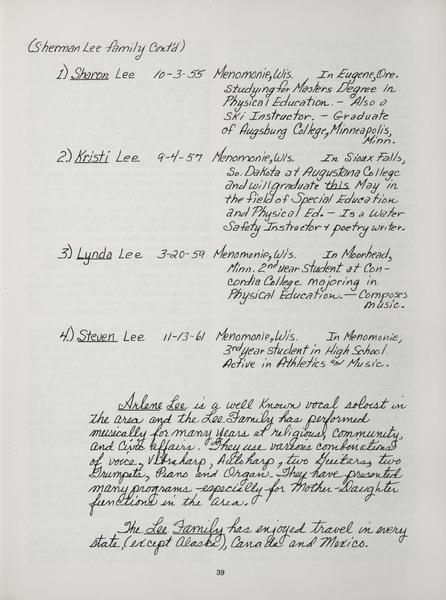 (Sherman Lee family Cont'd)
1.) Sharon Lee 10-3-55 Menomonie, Wis. In Eugene, Ore.
studying for Masters Degree in
Physical Education. - Also a
Ski Instructor. - Graduate
of Augsburg College, Minneapolis,
Minn.
2.) Kristi Lee 9-4-57 Menomonie, Wis. In Sioux Falls,
So. Dakota at Augustana College
and will graduate this May in
the field of Special Education
and Physical Ed. - Is a Water
Safety Instructor & poetry writer.
3.) Lynda Lee 3-20-59 Menomonie, Wis. In Moorhead,
Minn. 2nd year Student at Con-
cordia College majoring in
Physical Education. - Composes
music.
4.) Steven Lee 11-13-61 Menomonie, Wis. In Menomonie,
3rd year student in High School
Active in Athletics & Music.
Arlene Lee is a well known vocal soloist in
the area and the Lee Family has performed
musically for many years at religious, community,
and Civic affairs. They use various combinations
of voice, Vibraharp, Autoharp, two Guitars, two
Trumpets, Piano and Organ - They have presented
many programs especially for Mother-Daughter
functions in the area.
The Lee Family has enjoyed travel in every
state, (except Alaska), Canada and Mexico.
39